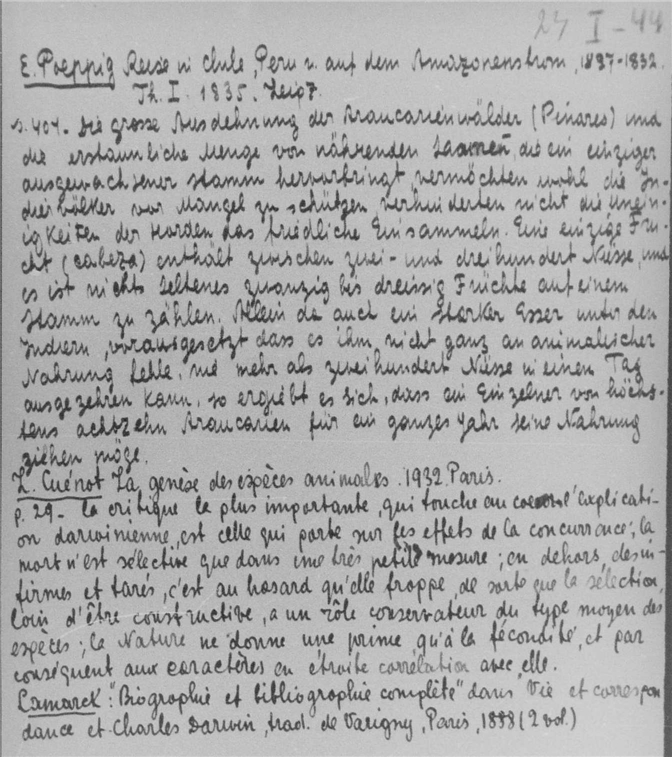 27 I - 44
E. Poeppig Reise in Chile, Peru u. auf dem Amazonenstrom, 1827-1832.
Th. I. 1835. Leipz.
s. 404. Die grosse Ausdehnung der Araucarienwälder (Piñares) und
die erstaunliche Menge von nährenden Saamen, die ein einziger
ausgewachsener Stamm hervorbringt, vermöchten wohl die In-
diervölker vor Mangel zu schützen, verhinderten nicht die Unein-
igkeiten der Horden das friedliche Einsammeln. Eine einzige Fru-
cht (cabeza) enthält zwischen zwei- und dreihundert Nüsse, und
es ist nichts seltenes zwanzig bis dreissig Früchte auf einem
Stamm zu zählen. Allein da auch ein starker Esser unter den
Indiern, vorausgesetzt dass es ihm nicht ganz an animalischer
Nahrung fehle, nie mehr als zweihundert Nüsse in einem Tag
ausgezehren kann, so ergiebt es sich, dass ein Einzelner von höchs-
tens achtzehn Araucarien für ein ganzes Jahr seine Nahrung
ziehen möge.
L. Cuénot La genèse des espèces animales. 1932. Paris.
p. 29 - La critique la plus importante, qui touche au coeur l'explicati-
on darwinienne, est celle qui porte sur les effets de la concurrence; la
mort n'est sélective que dans une très petite mesure; en dehors des in-
firmes et tarés, c'est au hasard qu'elle frappe, de sorte que la sélection,
loin d'être constructive, a un rôle conservateur du type moyen des
espèces; la Nature ne donne une prime qu'à la fécondité, et par
conséquent aux caractères en étroite corrélation avec elle.
Lamarck: "Biographie et bibliographie complète" dans Vie et correspon
dance et Charles Darwin, trad. de Varigny, Paris, 1888 (2 vol.)